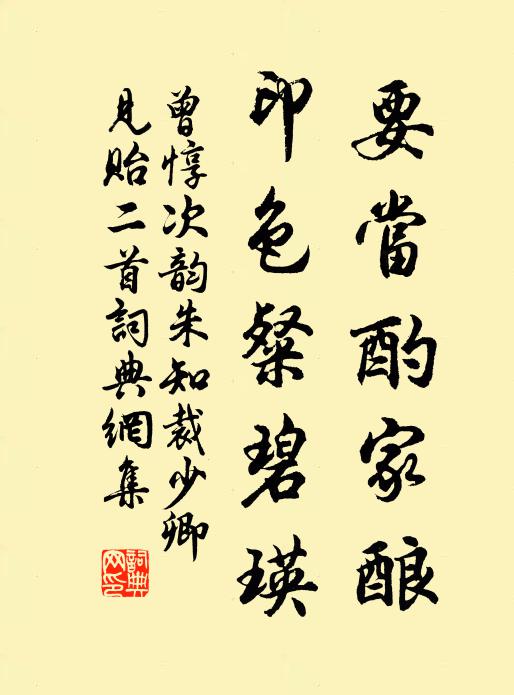 要當酌家酿
印色粲碧瑛
曾惇次韵朱知裁少卿
見貽二首詞典網集
詞典網印